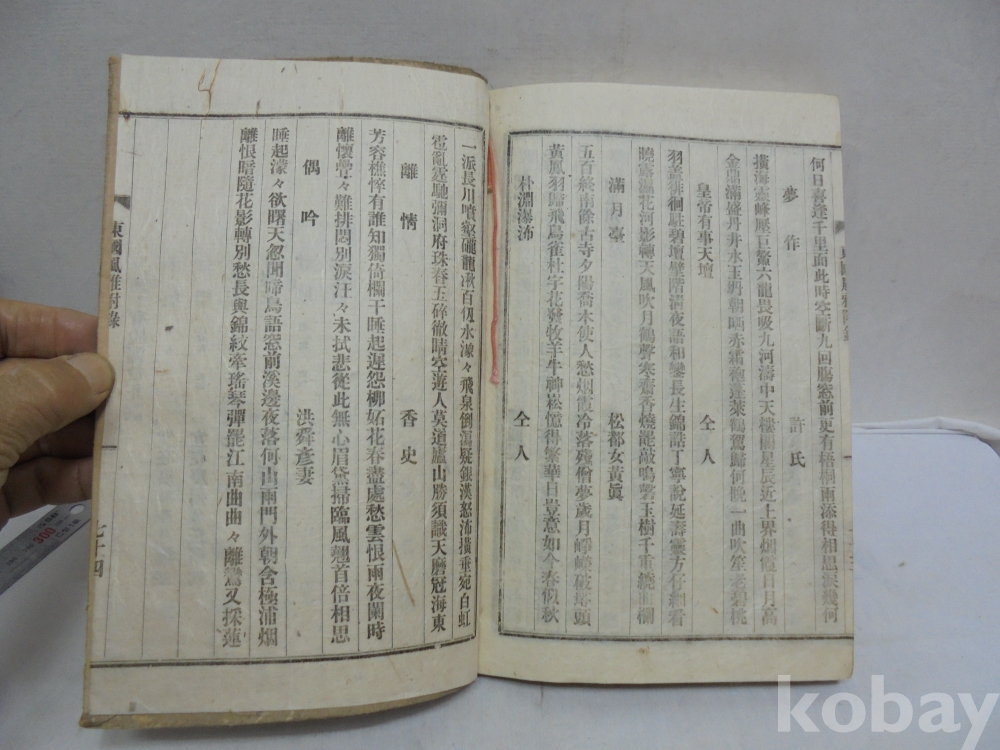 何日喜逢千里面此時空斷九回膓窓前更有梧桐雨添得相思淚幾何
夢作 許氏
橫海靈峰壓巨鰲六龍晨吸九河濤中天樓閣星辰近上界烟霞日月高
金鼎滿盛丹井水玉壇朝晒赤霜袍蓬萊鶴駕歸何晚一曲吹笙老碧桃
皇帝有事天壇 仝人
羽蓋徘徊駐碧壇壁階淸夜語和鑾長生錦誥丁寧說延壽靈方仔細看
曉露濕花河影轉天風吹月鶴聲寒齋香燒罷敲鳴磬玉樹千重繞曲欄
滿月臺 松都女黃眞
五百終南餘古寺夕陽喬木使人愁烟霞冷落殘僧夢歲月崢嶸破塔頭
黃鳳羽歸飛鳥雀杜宇花發牧羊牛神崧憶得繁華日豈意如今春似秋
朴淵瀑㳍 仝人
一派長川噴壑礲龍湫百仭水潨々飛泉倒瀉疑銀漢怒沛橫垂宛白虹
雹亂霆馳彌洞府珠舂玉碎徹晴空遊人莫道廬山勝須識天磨冠海東
離情 香史
芳容樵悴有誰知獨倚欄干睡起遲怨柳妬花春盡處愁雲恨雨夜闌時
離懷疊々難排悶別淚汪々未拭悲從此無心眉黛掃臨風翹首倍相思
偶吟 洪舜彥妻
睡起濛々欲曙天忽聞啼鳥語窓前溪邊夜落何山雨門外朝含極浦烟
離恨暗隨花影轉別愁長與錦紋牽瑤琴彈罷江南曲曲々離鸞又採蓮
東國風雅對錄
七十四
kobay